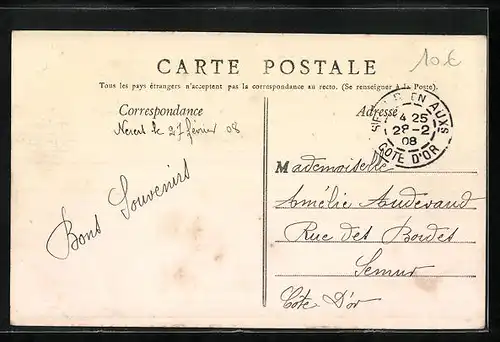 10 €
CARTE POSTALE
Tous les pays étrangers n'acceptent pas la correspondance au recto. (Se renseigner à la Poste).
Correspondance
Adresse
EN AUXS
4 25
28-2
08
COTE D'OR
le 27 février 08
Bons Souvenirs
Mademoiselle
Amélie
Rue des Bordes
Semur
Côte D'or